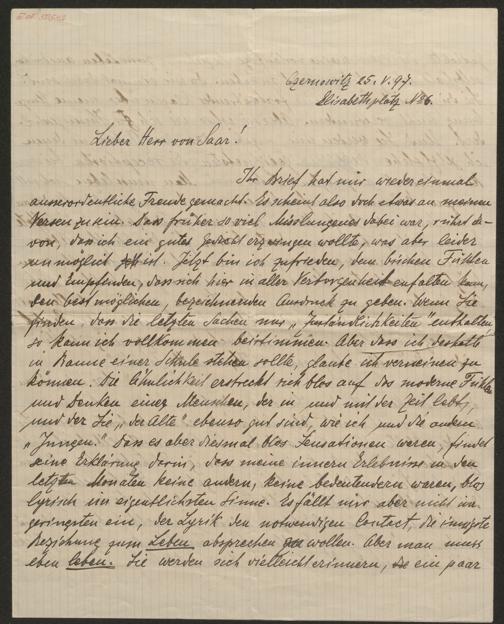 Czernowitz 25. V. 97.
Elisabethplatz N 6.
Lieber Herr von Saar!
Ihr Brief hat mir wieder einmal
ausserordentliche Freude gemacht. Es scheint also doch etwas an meinen
Versen zu sein. Dass früher so viel Misslungenes dabei war, rührt da-
von, dass ich ein gutes Gedicht erzwingen wollte, was aber leider
unmöglich ist. Jetzt bin ich zufrieden, dem bischen Fühlen
und Empfinden, das sich hier in aller Verborgenheit entfalten kann,
den bestmöglichen, bezeichnenden Ausdruck zu geben. Wenn Sie
finden, dass die letzten Sachen nur „Zuständlichkeiten" enthalten,
so kann ich vollkommen beistimmen. Aber dass ich deshalb
in Banne einer Schule stehen sollte, glaube ich verneinen zu
können. Die Ähnlichkeit erstreckt sich blos auf das moderne Fühlen
und Denken eines Menschen, der in und mit der Zeit lebt,
und der Sie, „der Alte" ebenso gut sind, wie ich und die andern
„Jungen." Dass es aber diesmal blos Sensationen waren, findet
seine Erklärung darin, dass meine innern Erlebnisse in den
letzten Monaten keine andern, keine bedeutendern waren, blos
lyrisch im eigentlichsten Sinne. Es fällt mir aber nicht im
geringsten ein, der Lyrik den notwendigen Contact, die innigste
Beziehung zum Leben absprechen zu wollen. Aber man muss
eben leben. Sie werden sich vielleicht erinnern, ein paar